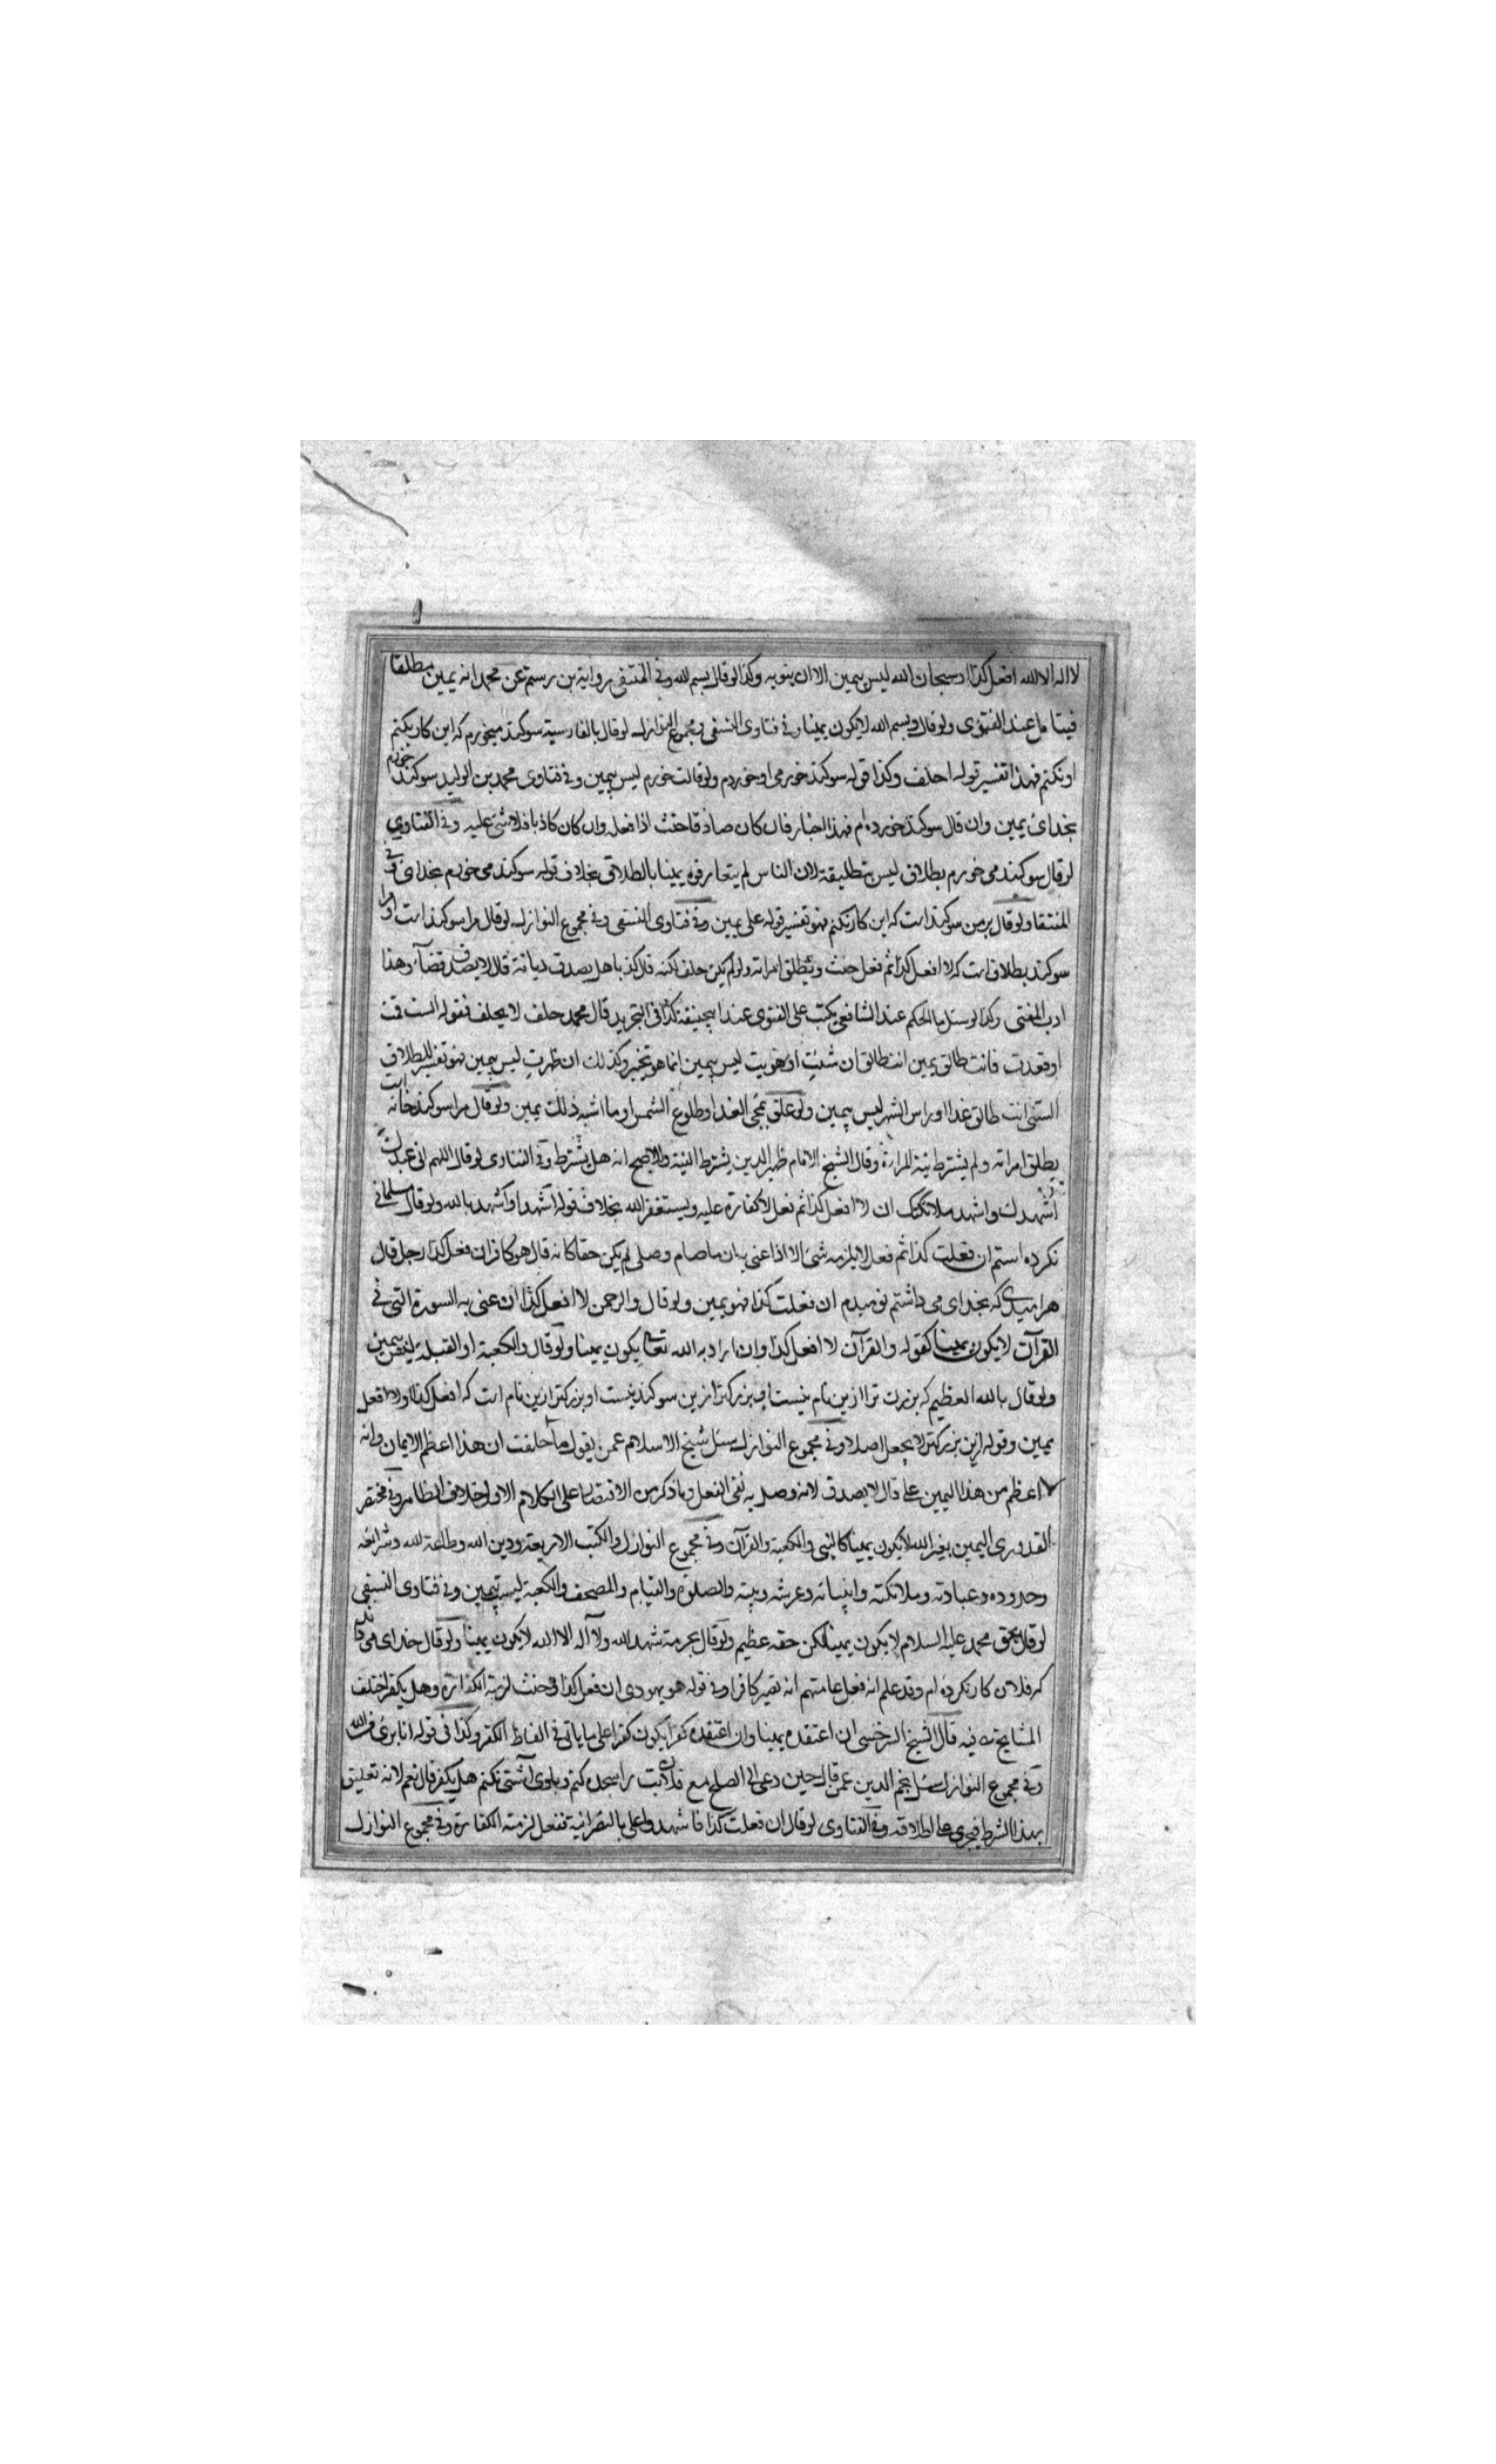 لا اله الا الله افعل كذا او سبحان الله ليس بيمين الا ان ينويه وكذا لو قال بسم الله وفى المنتقى رواية بن رستم عن محمد انه يمين مطلقا
فيتامل عند الفتوى ولو قال وبسم الله لا يكون يمينا وفى فتاوى النسفى ومجموع النوازل لو قال بالفارسية سوكند ميخورم كه اين كار نكنم
او نكنم فهذا تفسير قوله احلف وكذا قوله سوكند خورمى او خوردم ولو قالت خورم ليس بيمين وفى فتاوى محمد بن الوليد سوكند خورم
بخداى يمين وان قال سوكند خورده ام فهذا اخبار فان كان صادقا حنث اذا فعله وان كان كاذبا فلا شئ عليه وفى الفتاوى
لو قال سوكند مى خورم بطلاق ليس بتطليقة لان الناس لم يتعارفوه يمينا بالطلاق بخلاف قوله سوكند مى خورم بخداى وفى
المنتقا ولو قال بر من سوكند است كه اين كار نكنم فهو تفسير قوله على يمين وفى فتاوى النسفى وفى مجموع النوازل لو قال مرا سوكند است او مرا
سوكند بطلاق است كه لا افعل كذا ثم فعل حنث وتطلق امراته ولو لم يكن حلف لكنه قال كذبا هل يصدق ديانة قال لا يصدق قضاء وهذا
ادب المفتى وكذا لو سئل ما الحكم عند الشافعى يكتب على الفتوى عند ابيحنيفة كذا فى التجريد قال محمد حلف لا يحلف فقوله انت قمت
او قعدت فانت طالق يمين انت طالق ان شئت او هويت ليس بيمين انما هو تخيير وكذلك ان طهرت ليس بيمين فهو تفسير لطلاق
السنى انت طالق غدا او راس الشهر ليس بيمين ولو علق بمجى الغد او طلوع الشمس او ما اشبه ذلك يمين ولو قال مرا سوكند خانه است
يطلق امراته ولم يشترط نية المراة وقال الشيخ الامام ظهير الدين يشترط النية والاصح انه هل يشترط وفى الفتاوى لو قال اللهم انى عبدك
اشهدك واشهد ملائكتك ان لا افعل كذا ثم فعل لا كفارة عليه ويستغفر الله بخلاف قوله اشهد او اشهد بالله ولو قال مسلمانى
نكرده استم ان فعلت كذا ثم فعل لا يلزمه شئ الا اذا عنى به ان ما صام وصلى لم يكن حقا كانه قال هو كافر ان فعل كذا رجل قال
هر اميدى كه بخداى مى داشتم نوميدم ان فعلت كذا فهو يمين ولو قال والرحمن لا افعل كذا ان عنى به السورة التى فى
القرآن لا يكون يمينا كقوله والقرآن لا افعل كذا وان اراد به الله تعالى يكون يمينا ولو قال والكعبة او القبلة ليس بيمين
ولو قال بالله العظيم كه بزرك تر ازين نام نيست او بزركتر ازين سوكند نيست او بزركتر ازين نام است كه افعل كذا او لا افعل
يمين وقوله ازين بزركتر لا يجعل اصلا وفى مجموع النوازل سئل شيخ الاسلام عمن يقول ما حلفت ان هذا اعظم الايمان وانه
لا اعظم من هذا اليمين على قال لا يصدق لانه وصل به نفى الفعل وما ذكر من الاقتصار على الكلام الاول خلاف الظاهر وفى مختصر
القدورى اليمين بغير الله لا يكون يمينا كالنبى والكعبة والقرآن وفى مجموع النوازل والكتب الاربعة ودين الله وطاعة الله وشرائعه
وحدوده وعبادته وملائكته وانبيائه وعرشه وبيته والصلوة والقيام والمصحف والكعبة ليست بيمين وفى فتاوى النسفى
لو قال بحق محمد عليه السلام لا يكون يمينا لكن حقه عظيم ولو قال بحرمة شهد الله ولا اله الا الله لا يكون يمينا ولو قال خداى مى داند
كه فلان كار نكرده ام وقد علم انه فعل عامتهم انه يصير كافرا وفى قوله هو يهودى ان فعل كذا وحنث لزمته الكفارة وهل يكفر اختلف
المشايخ فيه قال الشيخ السرخسى ان اعتقده يمينا وان اعتقده كفرا يكون كفرا على ما ياتى فى الفاظ الكفر وكذا فى قوله انا برئ من الله
وفى مجموع النوازل سئل نجم الدين عمن قال حين دعى الى الصلح مع فلان بت را سجده كنم وباوى آشتى نكنم هل يكفر قال نعم لانه تعليق
بهذا الشرط فيجرى على اطلاقه وفى الفتاوى لو قال ان فعلت كذا فاشهدوا على بالنصرانية ففعل لزمته الكفارة وفى مجموع النوازل